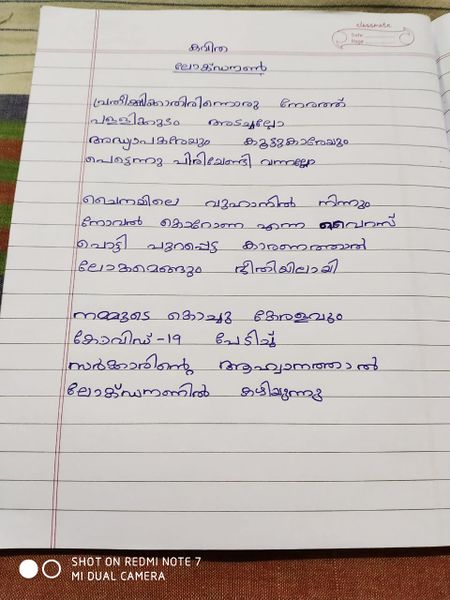 classmate
Date
Page
കവിത
ലോക്ഡൗൺ
പ്രതീക്ഷിക്കാതിരിന്നൊരു നേരത്ത്
പള്ളിക്കൂടം അടച്ചല്ലോ
അദ്ധ്യാപകരേയും കൂട്ടുകാരേയും
പെട്ടെന്നു പിരിയേണ്ടി വന്നല്ലോ
ചൈനയിലെ വുഹാനിൽ നിന്നും
നോവൽ കൊറോണ എന്ന വൈറസ്
പൊട്ടി പുറപ്പെട്ട കാരണത്താൽ
ലോകമെങ്ങും ഭീതിയിലായി
നമ്മുടെ കൊച്ചു കേരളവും
കോവിഡ്-19 പേടിച്ച്
സർക്കാരിന്റെ ആഹ്വാനത്താൽ
ലോക്ഡൗണിൽ കഴിയുന്നു
SHOT ON REDMI NOTE 7
MI DUAL CAMERA